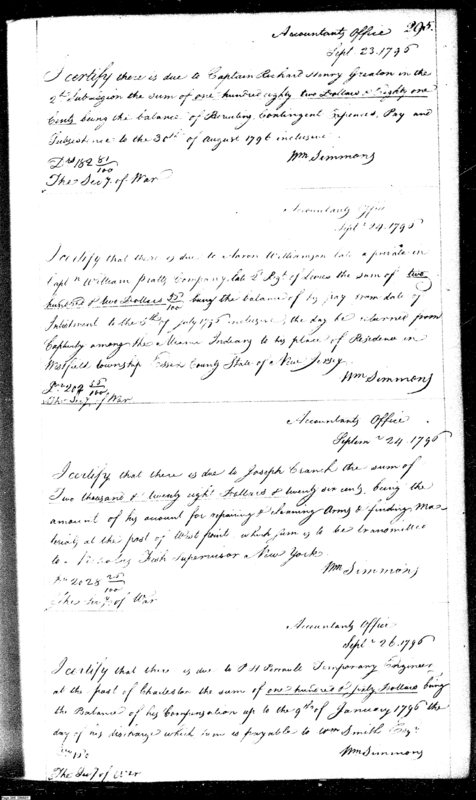 295.
Accountants Office
Sept. 23. 1796
I certify there is due to Captain Richard Henry Greaton in the
2d Subalegion the sum of one hundred eighty two Dollars & Eighty one
Cents being the balance of Recruiting, Contingent Expences, Pay and
Subsistence to the 30th of August 1796 inclusive
Drs 182 81/100
Wm Simmons
The Secy. of War
Accountants Office
Septr 24. 1796
I certify that there is due to Aaron Williamson late a private in
Captn William Piatts Company, late 2d Regt of Levies the sum of two
hundred & two Dollars 55/100 being the balance of his pay from date of
Inlistment to the 5th of July 1796 inclusive, the day he returned from
Captivity among the Miami Indians to his place of Residence in
Westfield township Essex County State of New Jersey.
Drs 202 55/100
Wm Simmons
The Secy. of War
Accountants Office
Septemr 24. 1796
I certify that there is due to Joseph Cranch the sum of
Two thousand & twenty eight Dollars & twenty six cents, being the
amount of his account for repairing & cleaning Arms & finding Ma-
terials at the post of West point which sum is to be transmitted
to Nicholas Fish Supervisor New York.
Drs 2028 26/100
Wm Simmons
The Secy. of War
Accountants Office
Septr 26. 1796
I certify that there is due to P H Perrault Temporary Engineer
at the post of Charleston the sum of one hundred & fifty Dollars being
the Balance of his Compensation up to the 9th of January 1796 the
day of his discharge which sum is payable to Wm Smith Esqr.
Wm Simmons
The Secy of War